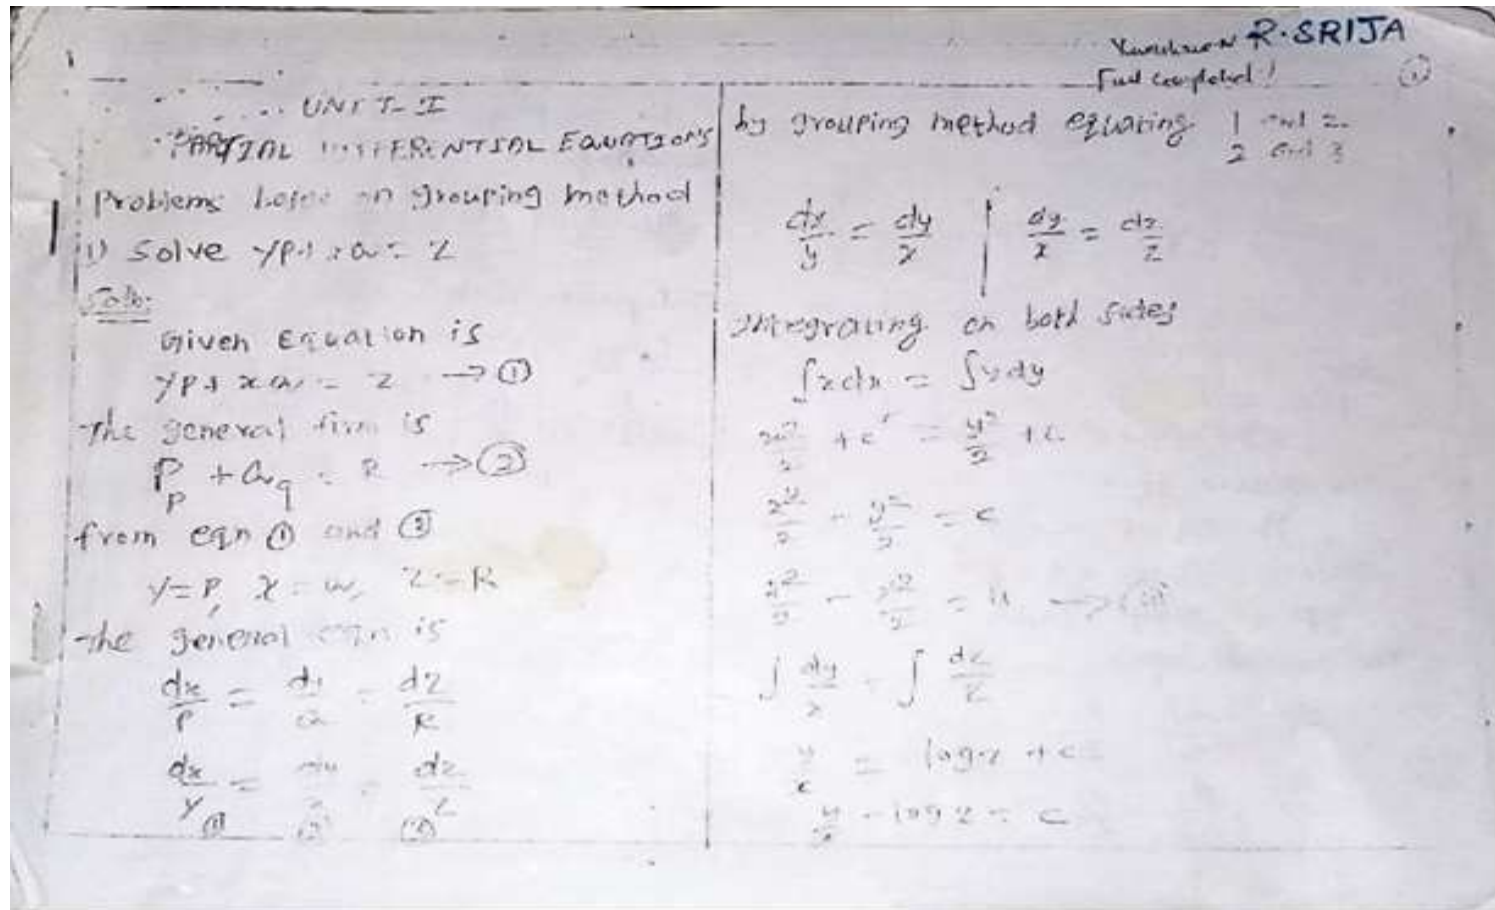 R. SRIJA
Full completed!
①
UNIT-I
PARTIAL DIFFERENTIAL EQUATIONS
Problems on grouping method
1) Solve yp + xq = z
Soln:
Given Equation is
yp + xq = z → ①
The general form is
Pp + Qq = R → ②
from eqn ① and ②
y=P, x=Q, z=R
The general eqn is
dx/P = dy/Q = dz/R
dx/y = dy/x = dz/z
① ② ③
by grouping method equating 1 and 2
2 and 3
dx/y = dy/x | dy/x = dz/z
Integrating on both sides
∫xdx = ∫ydy
x²/2 + c = y²/2 + c
x²/2 - y²/2 = c
x²/2 - y²/2 = u →
∫ dy/x = ∫ dz/z
y/x = log z + c
y/x - log z = c